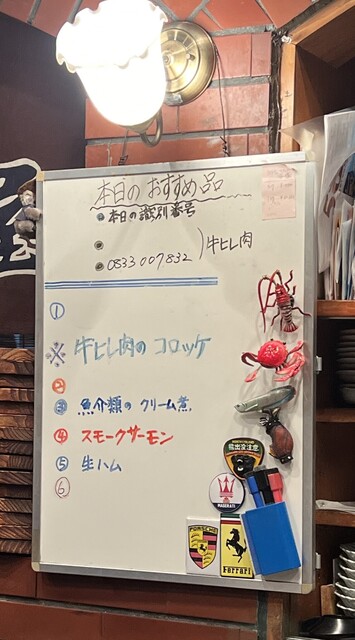 本日のおすすめ品
● 本日の識別番号
●
● 0833007832 ) 牛ヒレ肉
①
※ 牛ヒレ肉の コロッケ
②
③ 魚介類の クリーム煮.
④ スモークサーモン
⑤ 生ハム
⑥
熊出没注意
MASERATI
PORSCHE
Ferrari